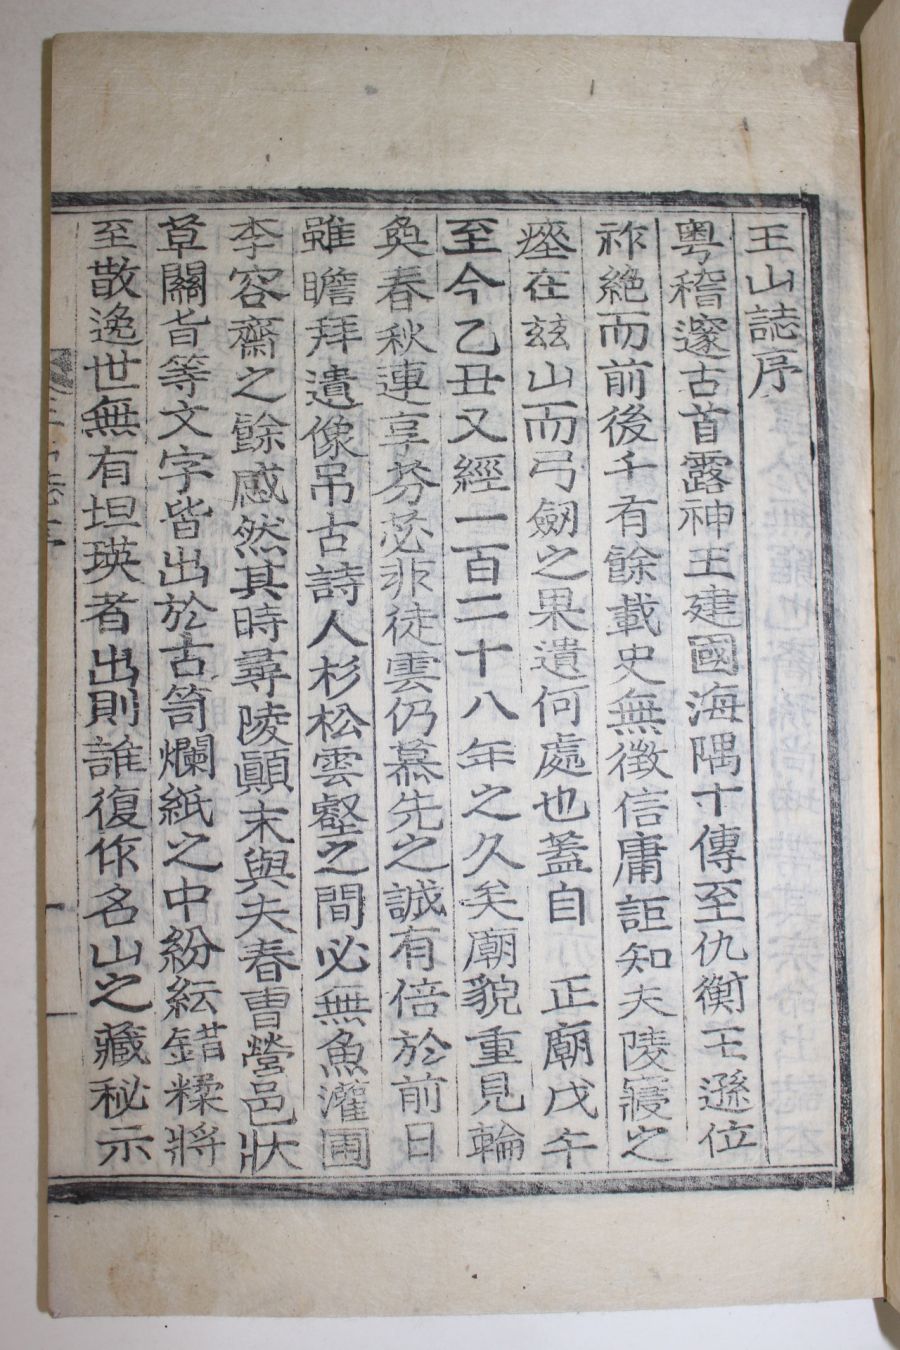 王山誌序
粤稽邃古首露神王建國海隅十傳至仇衡王遜位
祚絶而前後千有餘載史無徴信庸詎知夫陵寢之
瘞在玆山而弓劒之果遺何處也蓋自 正廟戊午
至今乙丑又經一百二十八年之久矣廟貌重見輪
奐春秋連享芬苾非徒雲仍慕先之誠有倍於前日
雖瞻拜遺像吊古詩人杉松雲壑之間必無魚灌圃
李容齋之餘慼然其時尋陵顚末與夫春曺營邑狀
草關旨等文字皆出於古笥爛紙之中紛紜錯糅將
至散逸世無有坦瑛者出則誰復作名山之藏秘示